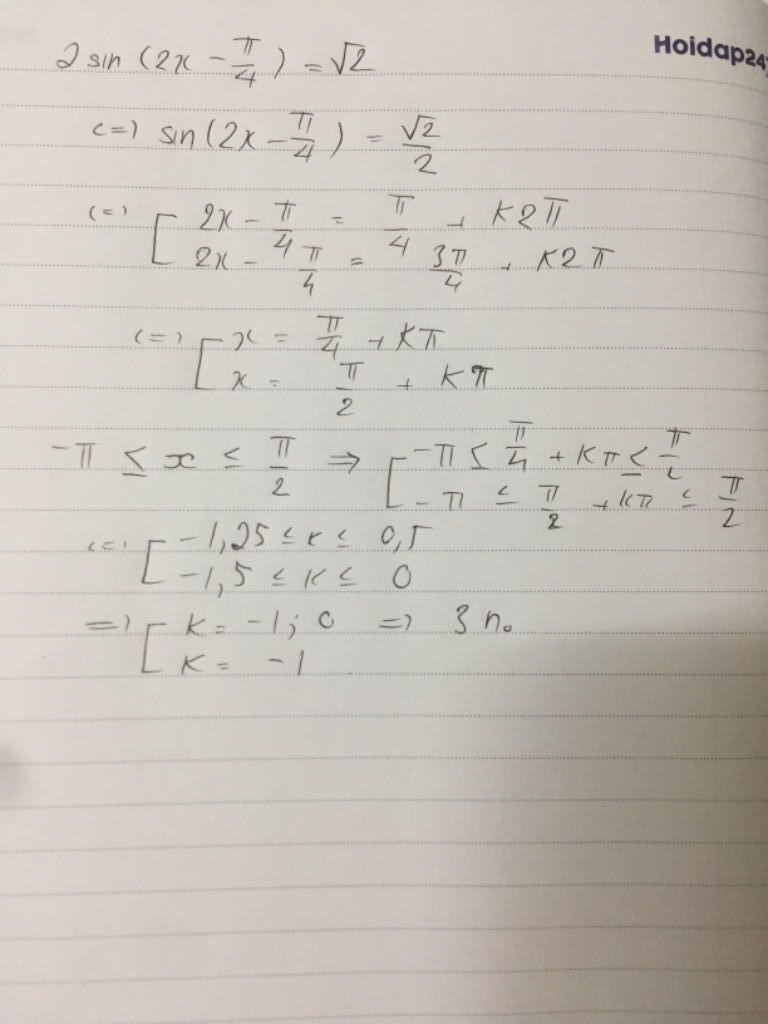 Hoidap247
2 sin (2x - π/4) = √2
<=> sin(2x - π/4) = √2/2
<=> [ 2x - π/4 = π/4 + K2π
2x - π/4 = 3π/4 + K2π
<=> [ x = π/4 + Kπ
x = π/2 + Kπ
-π ≤ x ≤ π/2 ⇒ [ -π ≤ π/4 + Kπ ≤ π/2
-π ≤ π/2 + Kπ ≤ π/2
<=> [ -1,25 ≤ K ≤ 0,5
-1,5 ≤ K ≤ 0
=> [ K = -1; 0 => 3 no
K = -1